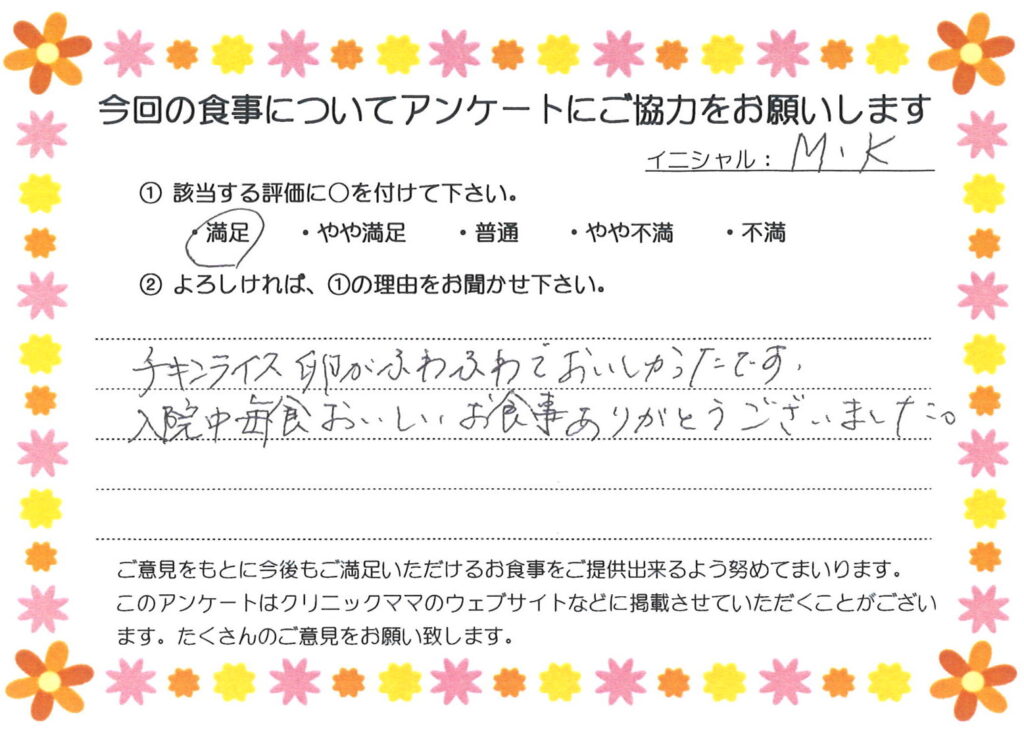 今回の食事についてアンケートにご協力をお願いします
イニシャル： M.K
① 該当する評価に○を付けて下さい。
・満足 ・やや満足 ・普通 ・やや不満 ・不満
② よろしければ、①の理由をお聞かせ下さい。
チキンライス卵がふわふわでおいしかったです。
入院中毎食おいしいお食事ありがとうございました。
ご意見をもとに今後もご満足いただけるお食事をご提供出来るよう努めてまいります。
このアンケートはクリニックママのウェブサイトなどに掲載させていただくことがござい
ます。たくさんのご意見をお願い致します。